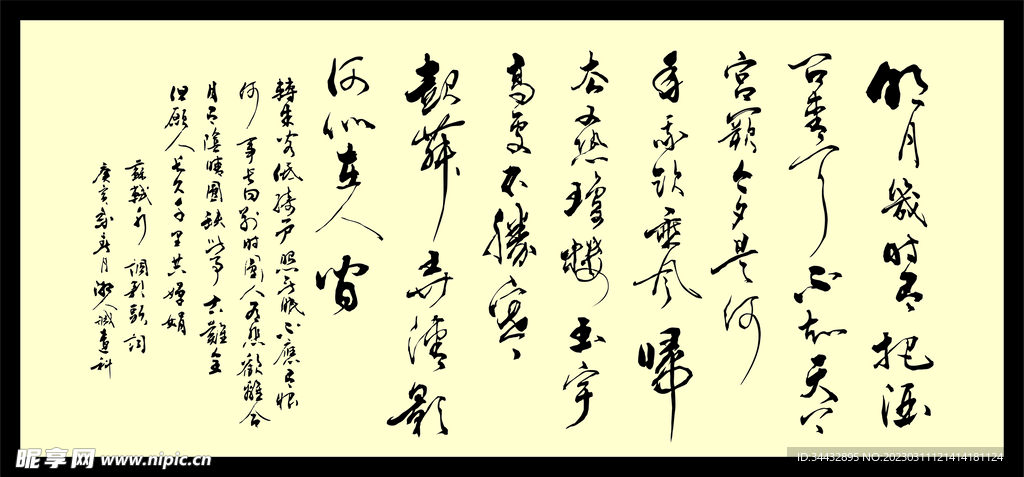 明月几時有把酒
问青天不知天上
宫闕今夕是何
年我欲乘风歸
去又恐瓊樓玉宇
高處不勝寒
起舞弄清影
何似在人間
轉朱阁低綺户照无眠不應有恨
何事长向别时圆人有悲歡離合
月有陰晴圆缺此事古難全
但願人长久千里共嬋娟
蘇軾水調歌頭詞
昵享网 www.nipic.cn
ID:34432895 NO:20230311121414181124